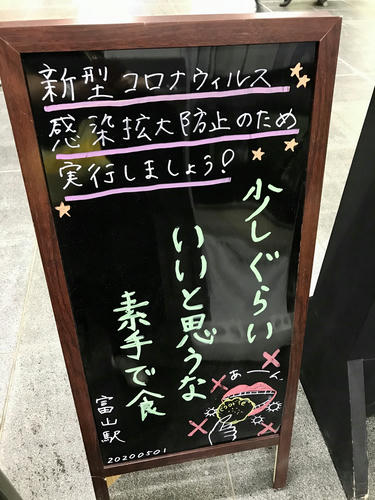 新型コロナウィルス
感染拡大防止のため
実行しましょう!
少しぐらい
いいと思うな
素手で食
あーん
富山駅
20200501